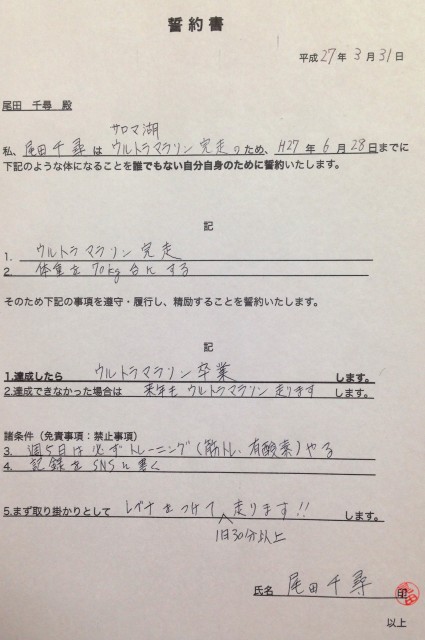 誓約書
平成27年3月31日
尾田 千尋 殿
サロマ湖
私、尾田千尋はウルトラマラソン完走のため、H27年6月28日までに
下記のような体になることを誰でもない自分自身のために誓約いたします。
記
1. ウルトラマラソン完走
2 体重を70kg台にする
そのため下記の事項を遵守・履行し、精励することを誓約いたします。
記
1.達成したら ウルトラマラソン卒業 します。
2.達成できなかった場合は 来年もウルトラマラソン走ります します。
諸条件（免責事項：禁止事項）
3. 週5日は必ずトレーニング(筋トレ、有酸素)やる
4. 記録をSNSに書く
5.まず取り掛かりとして レガナをつけて走ります!! します。
1日30分以上
氏名 尾田千尋 印
以上